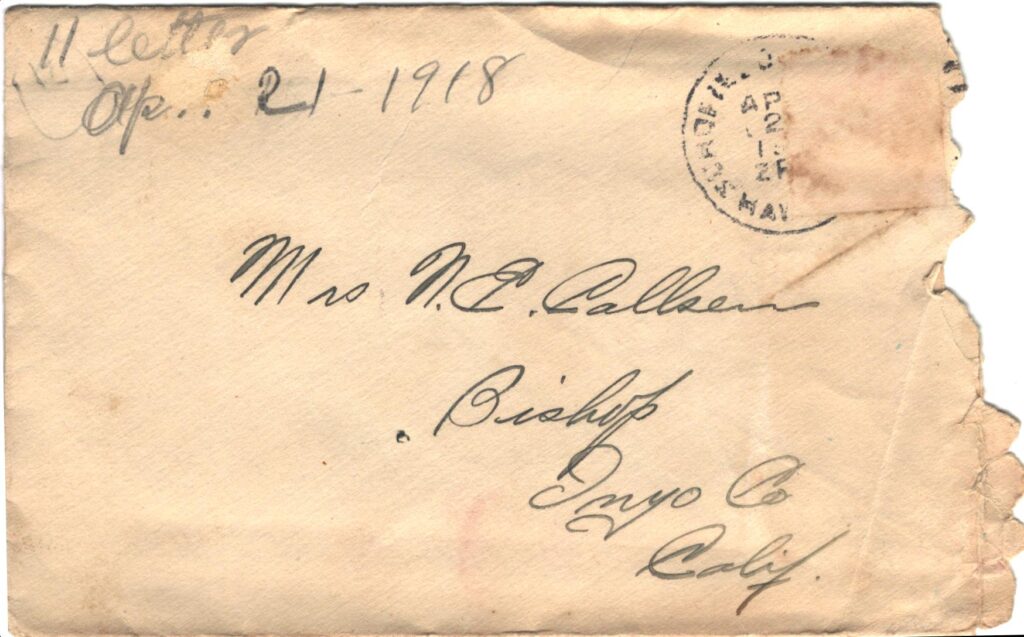 11 letter
Ap.. 21 - 1918
SCHOFIELD
HAW
AP
2
1
2P
Mrs N. E. Callsen
Bishop
Inyo Co
Calif.